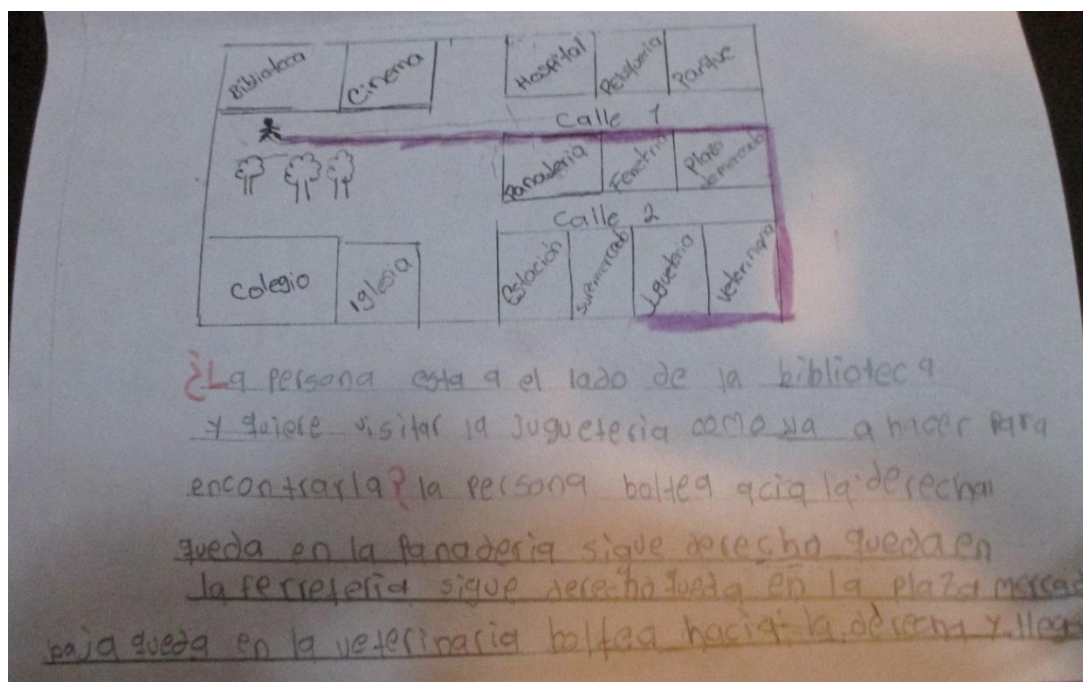 Biblioteca Cinema Hospital Peluqueria Parque
Calle 1
Panaderia Ferretria Plaza de mercado
Calle 2
Colegio Iglesia Estación Jugueteria Veterinaria
¿La persona esta a el lado de la biblioteca
y quiere visitar la jugueteria como va a hacer para
encontrarla? la persona boltea acia la derecha
queda en la panaderia sigue derecho queda en
la ferreteria sigue derecho queda en la plaza mercad
baja queda en la veterinaria boltea hacia la derecha y llega